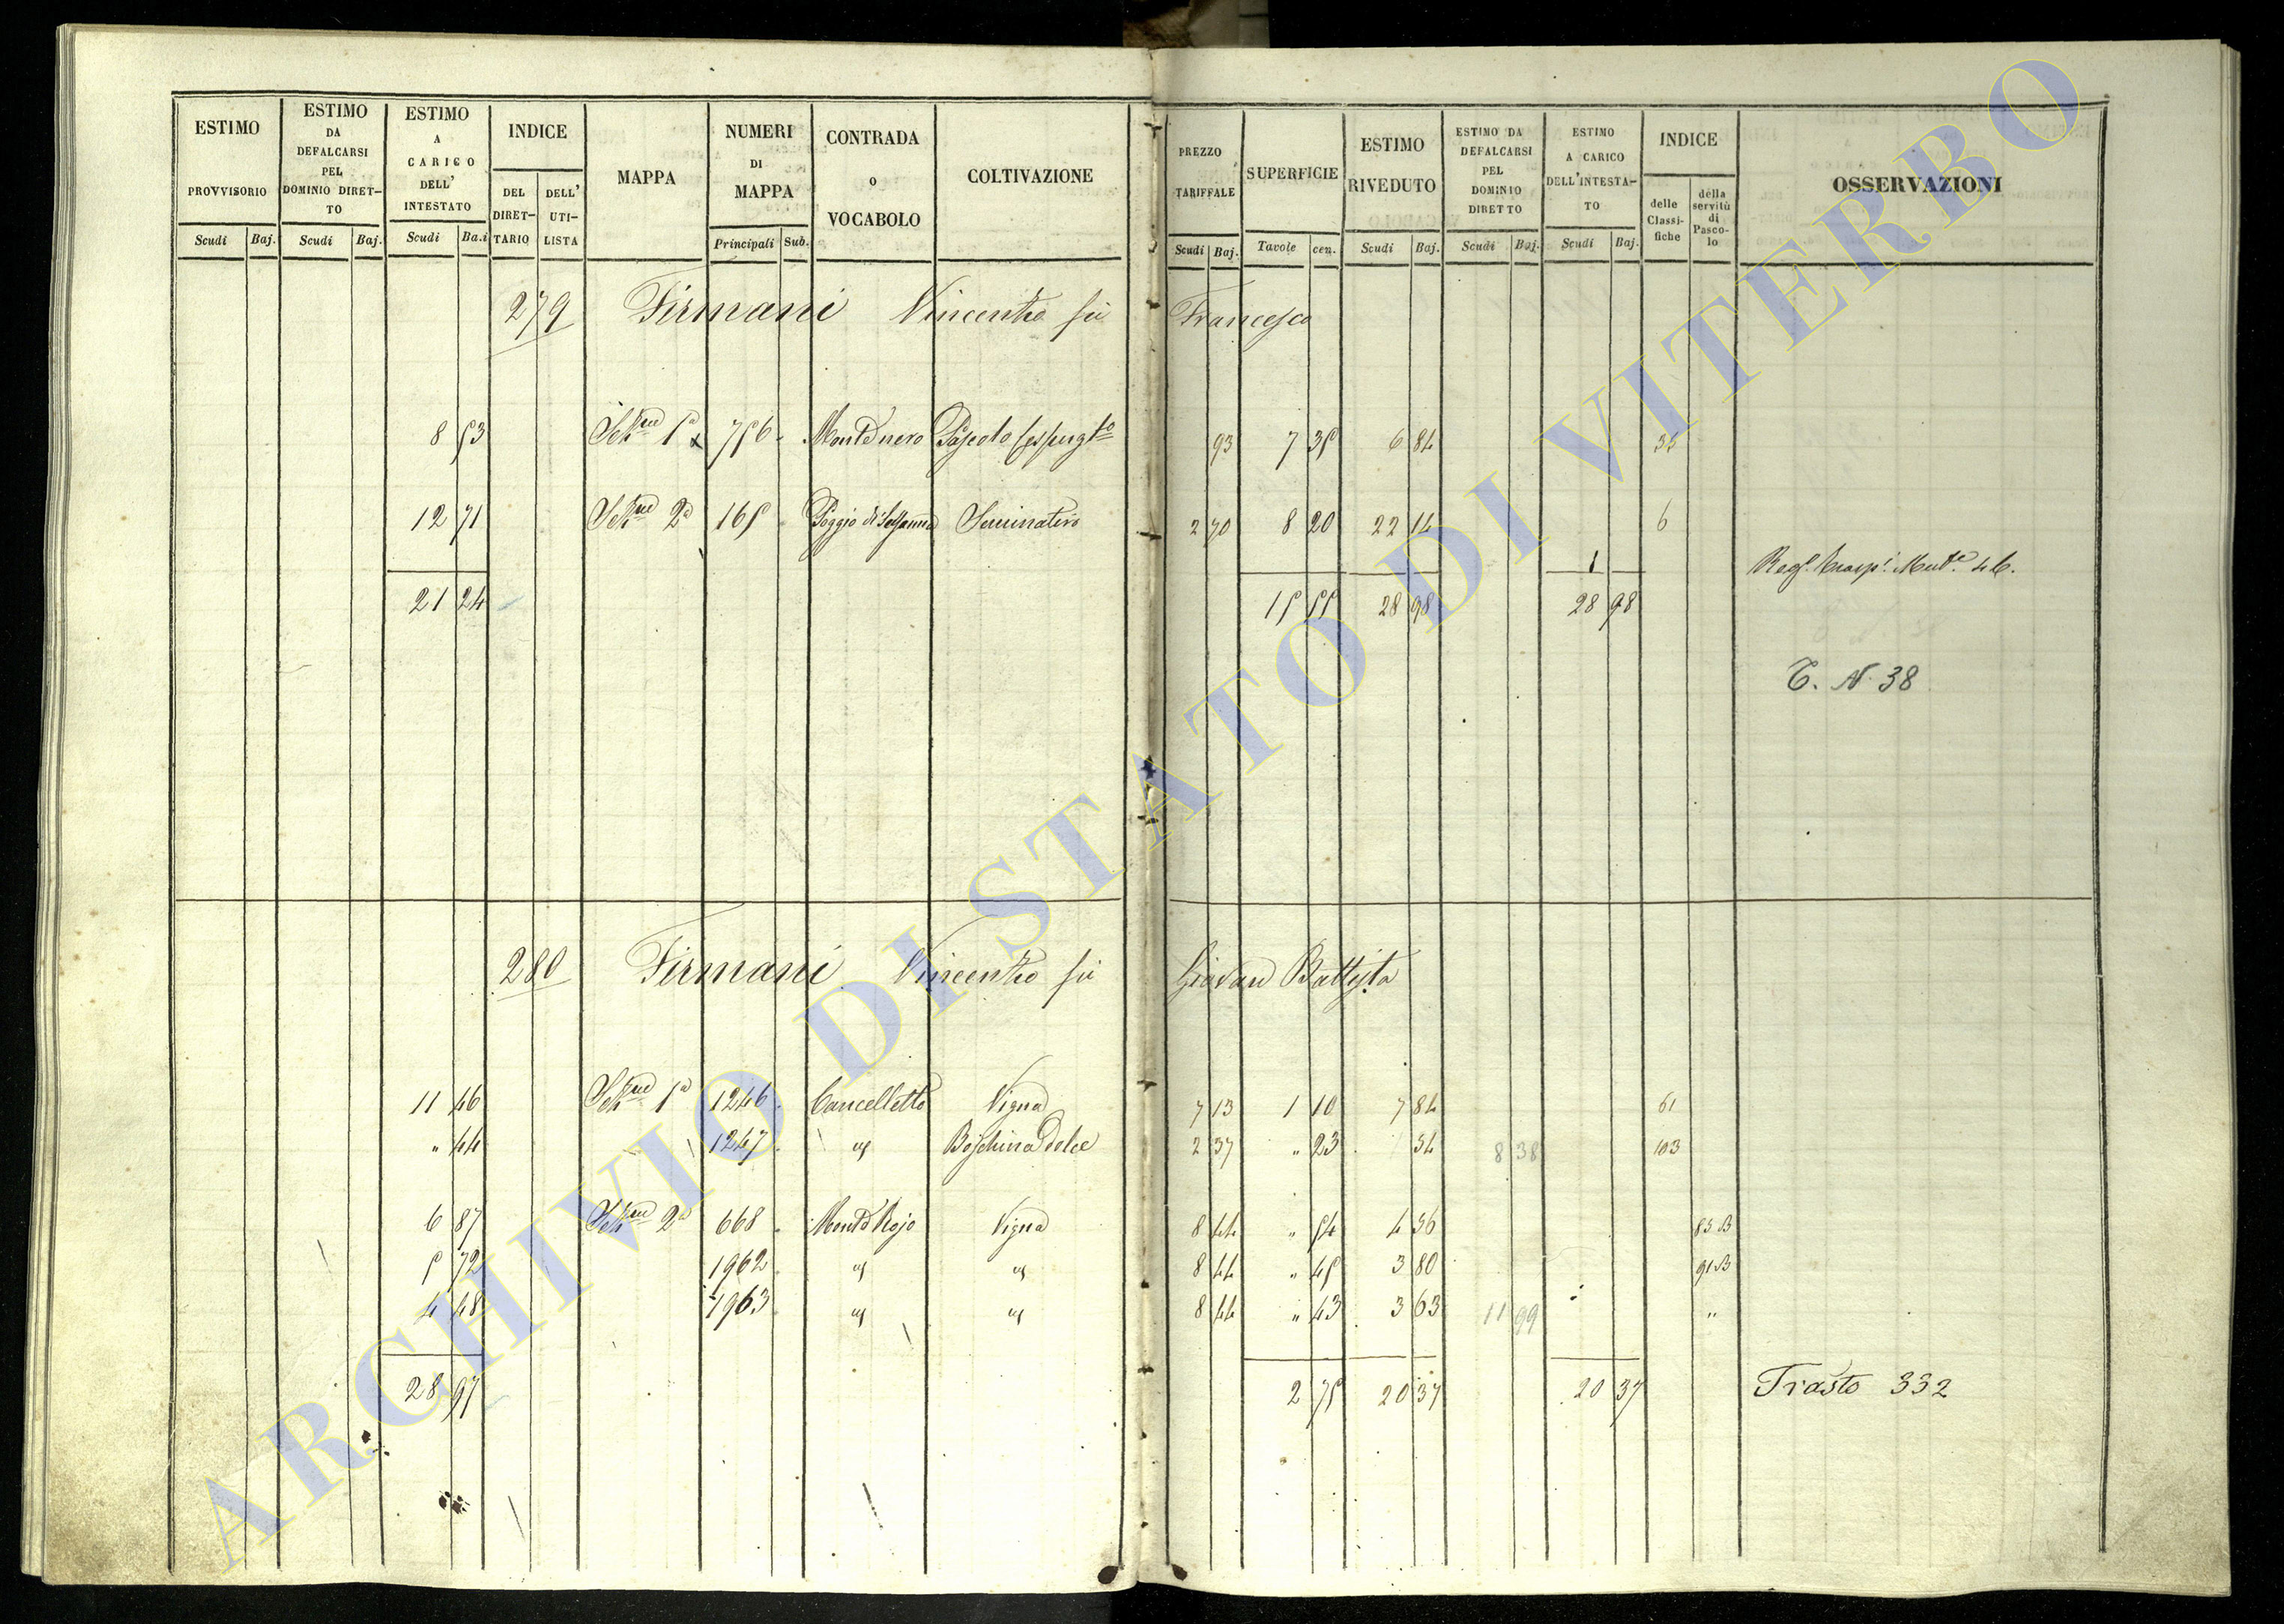 ESTIMO PROVVISORIO Scudi Baj.
ESTIMO DA DEFALCARSI PEL DOMINIO DIRET-TO Scudi Baj.
ESTIMO A CARICO DELL' INTESTATO Scudi Ba.i
INDICE DEL DIRET-TARIO DELL' UTI-LISTA
MAPPA
NUMERI DI MAPPA Principali Sub.
CONTRADA o VOCABOLO
COLTIVAZIONE
PREZZO TARIFFALE Scudi Baj.
SUPERFICIE Tavole cen.
ESTIMO RIVEDUTO Scudi Baj.
ESTIMO DA DEFALCARSI PEL DOMINIO DIRETTO Scudi Baj.
ESTIMO A CARICO DELL'INTESTA-TO Scudi Baj.
INDICE delle Classi-fiche della servitù di Pasco-lo
OSSERVAZIONI
279 Firmani Vincenzo fù Francesco
8 53 Sez.ne 1a 756 Monte nero Pascolo 93 7 35 6 84 35
12 71 Sez.ne 2a 165 Poggio di Seminativo 2 70 8 20 22 14 6
Mut.e 46.
21 24 15 55 28 98 28 98
T. N. 38
280 Firmani Vincenzo fù Giovan Battista
11 46 Sez.ne 1a 1246 Cancelletto Vigna 7 13 1 10 7 84 61
" 44 1247 " Boschina dolce 2 37 " 23 54 8 38 103
6 87 Sez.ne 2a 668 Monte Rojo Vigna 8 44 " 54 4 56 83 B
5 72 1962 " " 8 44 " 45 3 80 91 B
4 48 1963 " " 8 44 " 43 3 63 11 99 "
28 97 2 75 20 37 20 37 Trasto 332
ARCHIVIO DI STATO DI VITERBO